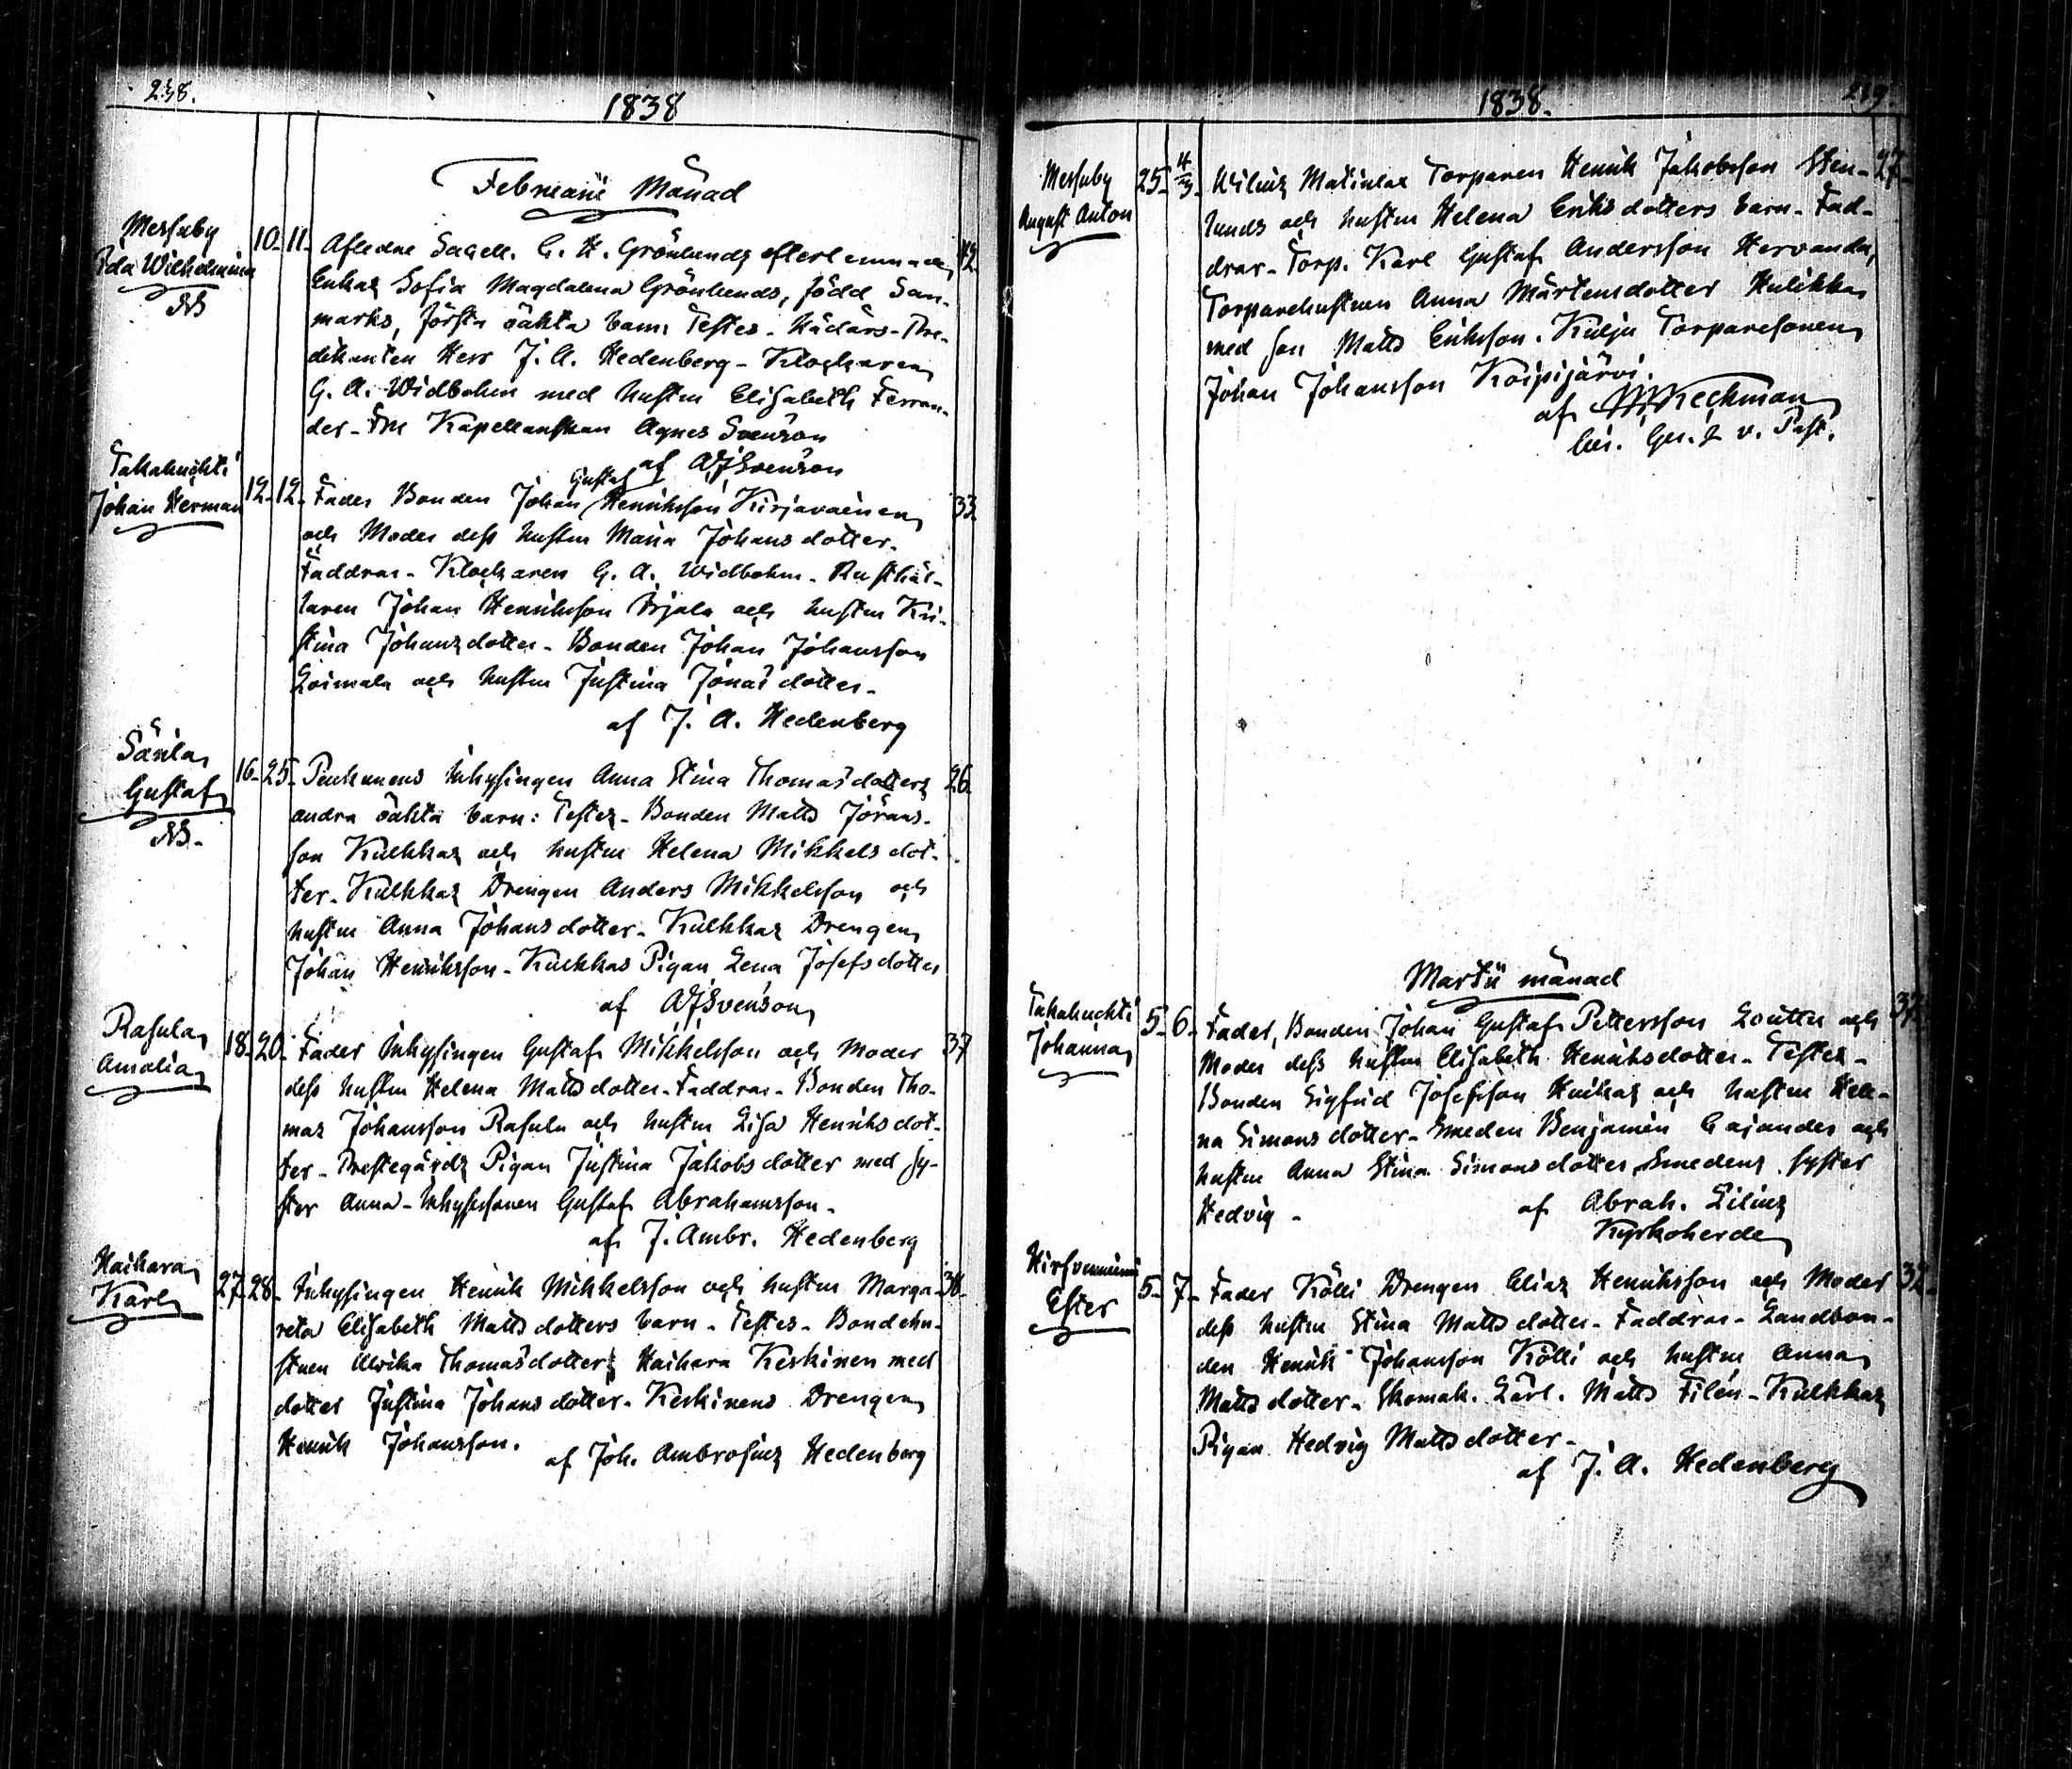 238.
1838
Februarii Månad
Messuby
Ida Wilhelmina
NB
10. 11. Afledne Sagell. C. H. Grönlunds efterlemnade 42.
Enkas Sofia Magdalena Grönlunds, född San-
marks, första oäkta barn: Testes - Hädårs-Pre-
dikanten Herr J. A. Hedenberg - Klockaren
G. A. Widbohm med hustru Elisabeth Ferran-
der - Fru Kapellanskan Agnes Svenson
af AJSvenson
Takahuchti
Johan Herman
12. 12. Fader Bonden Johan Gustaf Henriksson Kirjavainen 33.
och Moder dess hustru Maria Johansdotter.
Faddrar - Klockaren G. A. Widbohm - Rusthål-
laren Johan Henriksson Arjala och hustru Kri-
stina Johansdotter - Bonden Johan Johansson
Loimala och hustru Justina Jonasdotter -
af J. A. Hedenberg
Särila
Gustaf
NB.
16. 25. Inhysingen Anna Stina Thomasdotters 26.
andra oäkta barn: Testes - Bonden Matts Jörans-
son Kulkkas och hustru Helena Mikkelsdot-
ter - Kulkkas Drengen Anders Mikkelsson och
hustru Anna Johansdotter - Kulkkas Drengen
Johan Henriksson - Kulkkas Pigan Lena Josefsdotter
af AJSvenson
Rasula
Amalia
18. 20. Fader Inhysingen Gustaf Mikkelsson och Moder 37
dess hustru Helena Mattsdotter - Faddrar - Bonden Tho-
mas Johansson Rasula och hustru Lisa Henriksdot-
ter - Prestegårds Pigan Justina Jakobsdotter med sy-
ster Anna - Inhysesonen Gustaf Abrahamsson -
af J. Ambr. Hedenberg
Haihara
Karl
27. 28. Inhysingen Henrik Mikkelsson och hustru Marga- 38.
reta Elisabeth Mattsdotters barn - Testes - Bondehu-
strun Ulrika Thomasdotter Haihara Keskinen med
dotter Justina Johansdotter - Keskinens Drengen
Henrik Johansson.
af Joh. Ambrosius Hedenberg
1838.
239.
Messuby
August Anton
25. 4/3. Wilus Matinlas Torparen Henrik Jakobsson Sten- 27.
lunds och hustru Helena Eriksdotters barn - Fad-
drar - Torp. Karl Gustaf Andersson Hervanda,
Torparehustrun Anna Mårtensdotter Hulikka
med son Matts Eriksson. Kulju Torparesonen
Johan Johansson Koipijärvi.
af Heckman
v. Past.
Martii månad
Takahuchti
Johanna
5. 6. Fader, Bonden Johan Gustaf Pettersson Louttu och 32.
Moder dess hustru Elisabeth Henriksdotter - Testes -
Bonden Sigfrid Josefsson Huikas och hustru Hele-
na Simonsdotter - Smeden Benjamin Cajander och
hustru Anna Stina Simonsdotter, Smedens syster
Hedvig -
af Abrah. Lilius
Kyrkoherde
Hirfvenniemi
Ester
5. 7. Fader Kölli Drengen Elias Henriksson och Moder 32.
dess hustru Stina Mattsdotter - Faddrar - Landbon-
den Henrik Johansson Kölli och hustru Anna
Mattsdotter - Skomak. Lärl. Matts Filén - Kulkkas
Pigan Hedvig Mattsdotter -
af J. A. Hedenberg